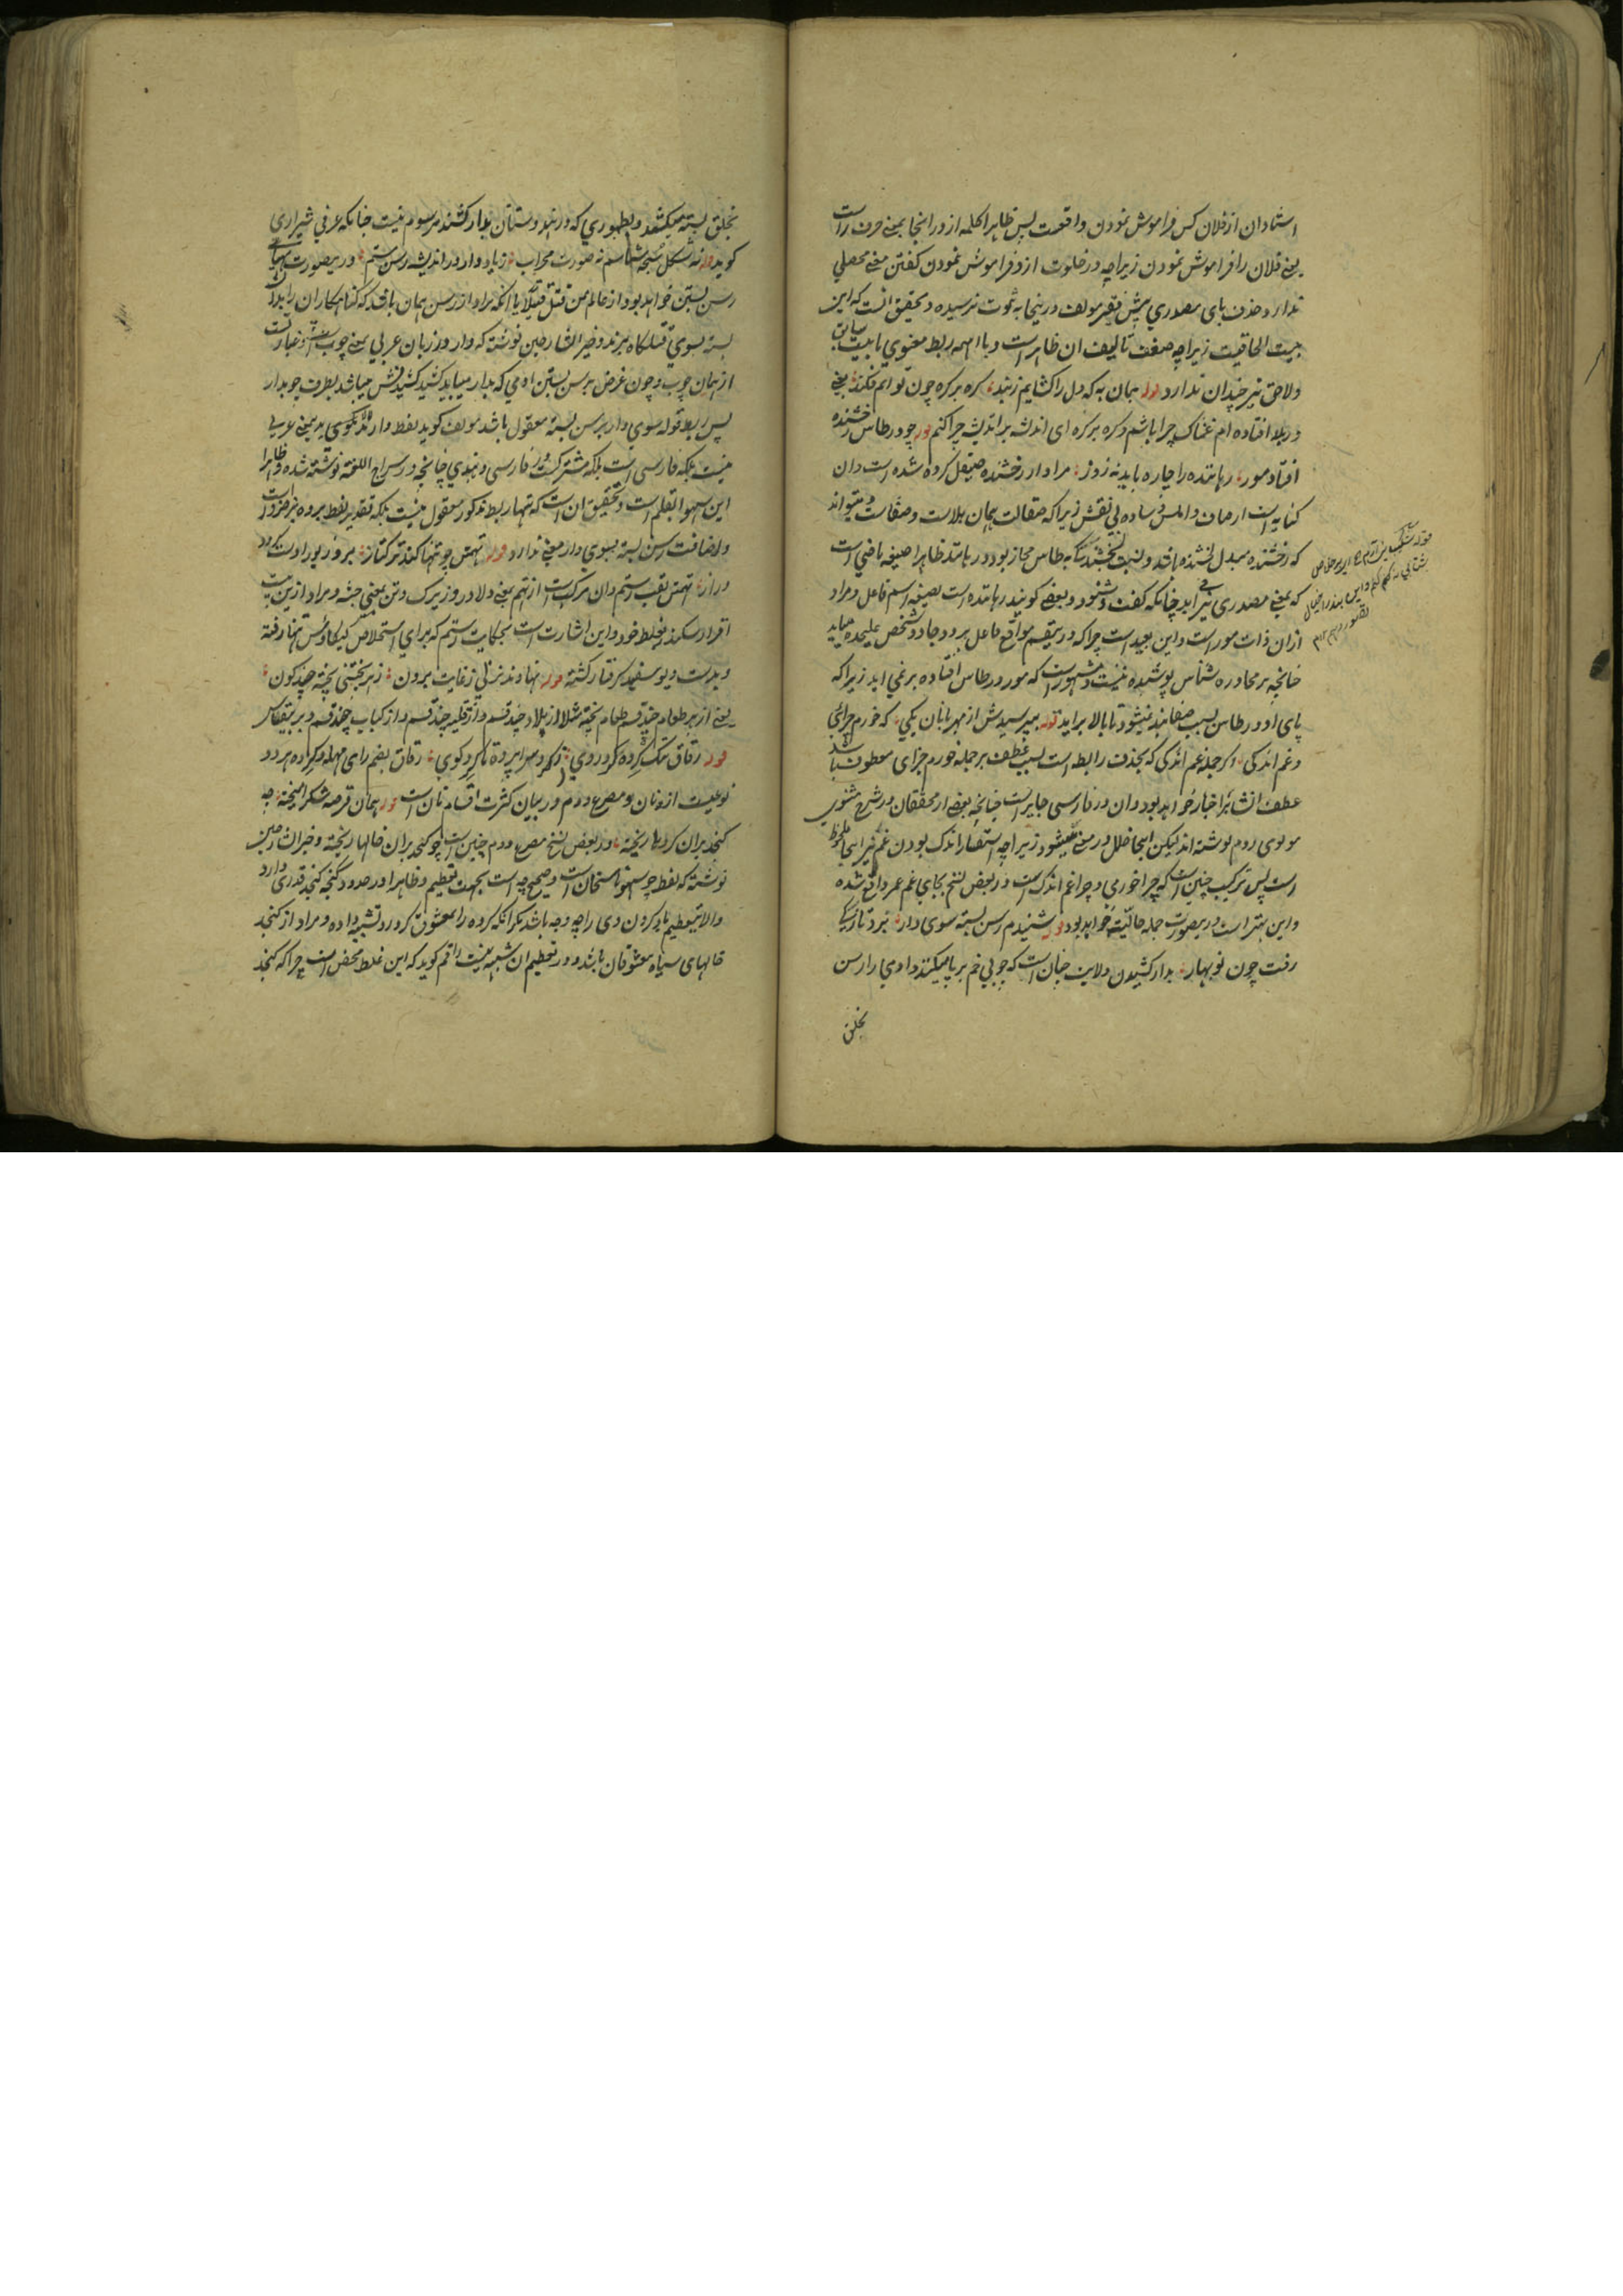 استادان از فلان کس فراموش نمودن واقعست پس ظاهرا کلمه از در انجا بمعنے حرف را است
یعنے فلان را فراموش نمودن زیراچه در خلوت ازو فراموش نمودن کفتن معنے محصلی
ندارد و حذف یای مصدری پیش فقیر مولف درینجا به ثبوت نرسیده و تحقیق انست که این
بیت الحاقیست زیراچه ضعف تالیف ان ظاهر است و با اینهمه ربط معنوی با بیت سابق
ولاحق نیز چندان ندارد قوله همان به که دل را کشایم زبند کره بر کره چون توانم فکند یعنے
در بلا افتاده ام غمناک چرا باشم و کره بر کره ای اندیشه بر اندیشه چرا کنم قوله چو در طاس رخشنده
افتاد مور رهاننده را چاره باید نه زور مراد از رخشنده صیقل کرده شده است و ان
کنایه است از صاف و املس و ساده بی نقش زیرا که صقالت همان جلاست و صفاست و میتواند
که رخشنده مبدل لخشنده باشد و نسبت لخشندگی به طاس مجاز بود و رهانند ظاهرا صیغه ماضی است
که بمعنے مصدری نیز اید چنانکه کفت و شنود و بعضے کویند رهانده است بصیغه اسم فاعل و مراد
ازان ذات مور است و این بعید است چرا که درین قسم مواقع فاعل هر دو جا دو شخص علیحده میاید
چنانچه بر محاوره شناس پوشیده نیست و مشهور است که مور در طاس افتاده بر نمی اید زیرا که
پای او در طاس بسبب صفا بند نمیشود تا بالا براید قوله بپرسیدش از مهربانان یکی که خورم چرائی
و غم اندکی اکر جمله غم اندکی که بحذف رابطه است بسبب عطف بر جمله خورم چرای معطوف باشد
عطف انشا بر اخبار خواهد بود و ان در فارسی جایز است چنانچه بعضے از محققان در شرح مثنوی
مولوی روم نوشته اند لیکن اینجا خلل در معنے میشود زیراچه استفسار اندک بودن غم نیز اینجا ملحوظ
است پس ترکیب چنین است که چرا خورمی و چرا غم اندک است و در بعض نسخ بجای غم عمر واقع شده
و این بهتر است درینصورت جمله حالیته خواهد بود قوله شنیدم رسن بسته سوی دار برو تازگی
رفت چون نوبهار بدار کشیدن ولایت چنان است که چوبی خم بر پا میکنند و ادمی را رسن
بحلق
بحلق بسته میکشند و بطوری که در هندوستان بدار کشند مرسوم نیست چنانکه عرفی شیرازی
کوید نه شکل سبحه شناسم نه صورت محراب زیاد دار در اندیشه رسن بستم درینصورت
رسن بستن خواهد بود از عالم من قتل قتیلا یا انکه مراد از رسن همان باشد که کناهکاران را بدان
بسته بسوی قتلکاه برند و خیر الشارحین نوشته که دار در زبان عربی بمعنے چوب است
از همان چوب و چون غرض بر رسن بستن ادمی که بدار میباید کشید کشیدنش میباشد بطرف چوب دار
پس ربط قوله سوی دار بر رسن بسته معقول باشد مولف کوید لفظ دار بمعنے عربی
نیست بلکه فارسی است بلکه مشترکست در فارسی و هندی چنانچه در سراج اللغة نوشته شده و ظاهرا
این سهو القلم است و تحقیق ان است که تنها ربط مذکور معقول نیست بلکه تقدیر لفظ برده نیز ضرور است
و اضافت رسن بسته بسوی دار معنے ندارد قوله تهمتن چو تنها کند ترکتاز بروز پور اوست
دراز تهمتن لقب رستم و ان مرکب است از تهم بمعنے دلاور و زیرک و تن بمعنے جثه و مراد ازین بیت
اقرار سکندر بغلط خود و این اشارت است بحکایت رستم که برای استخلاص کیکاوس تنها رفته
و بدست دیو سفید کرفتار کشته قوله نهادند نزلی ز غایت برون ز هر پختنی پخته چند کون
یعنے از هر طعام چند قسم طعام پخته مثلا از پلاو چند قسم و از قلیه چند قسم و از کباب چند قسم و برین قیاس
قوله رقاق تنک کرده کرد روی کوی رقاق بضم رای مهمله و کرده هر دو
نوعیست از نان و مصرع دوم در بیان کثرت اقسام نان است قوله همان قرصه شکر امیخته چه
کنجد بران کردها ریخته و در بعض نسخ مصرع دوم چنین است چو کنجد بران خالها ریخته و خیر الشارحین
نوشته که لفظ چو سهو ناسخان است و صحیح چه است بجهت تعظیم و ظاهرا در حدود کنجه کنجد قدری دارد
والا تعظیم یاد کردن وی را چه وجه باشد مکر انکه کرده را بمعشوق کرد رو تشبیه داده و مراد از کنجد
خالهای سیاه معشوقان باشد و در تعظیم ان شبهه نیست راقم کوید که این غلط محض است چرا که کنجد